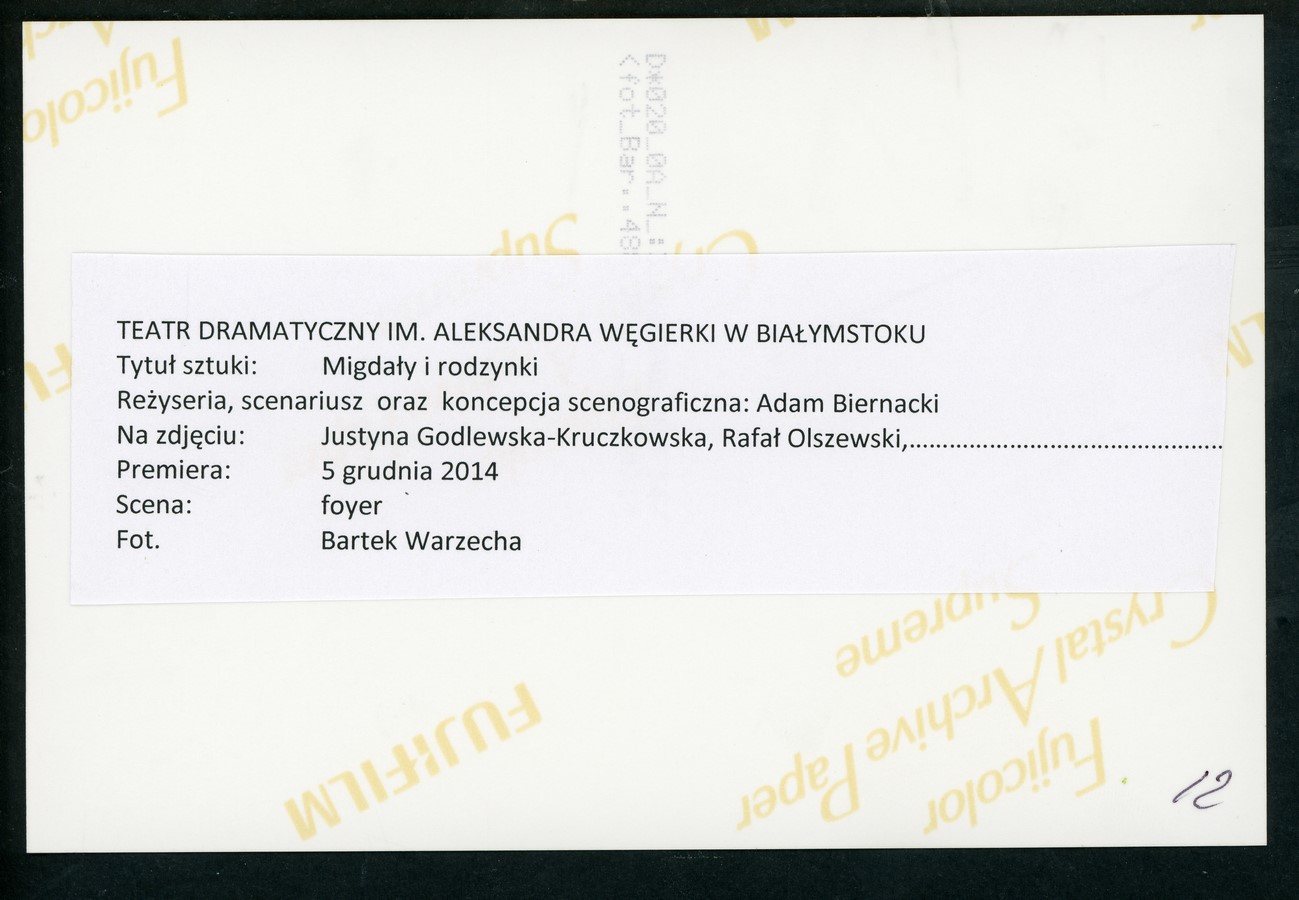 Fujicolo
D*020_0A_N_
<fot_Bar..48
Sup
TEATR DRAMATYCZNY IM. ALEKSANDRA WĘGIERKI W BIAŁYMSTOKU
Tytuł sztuki: Migdały i rodzynki
Reżyseria, scenariusz oraz koncepcja scenograficzna: Adam Biernacki
Na zdjęciu: Justyna Godlewska-Kruczkowska, Rafał Olszewski,................................................
Premiera: 5 grudnia 2014
Scena: foyer
Fot. Bartek Warzecha
FUJIFILM
Fujicolor
Crystal Archive Paper
Supreme
12